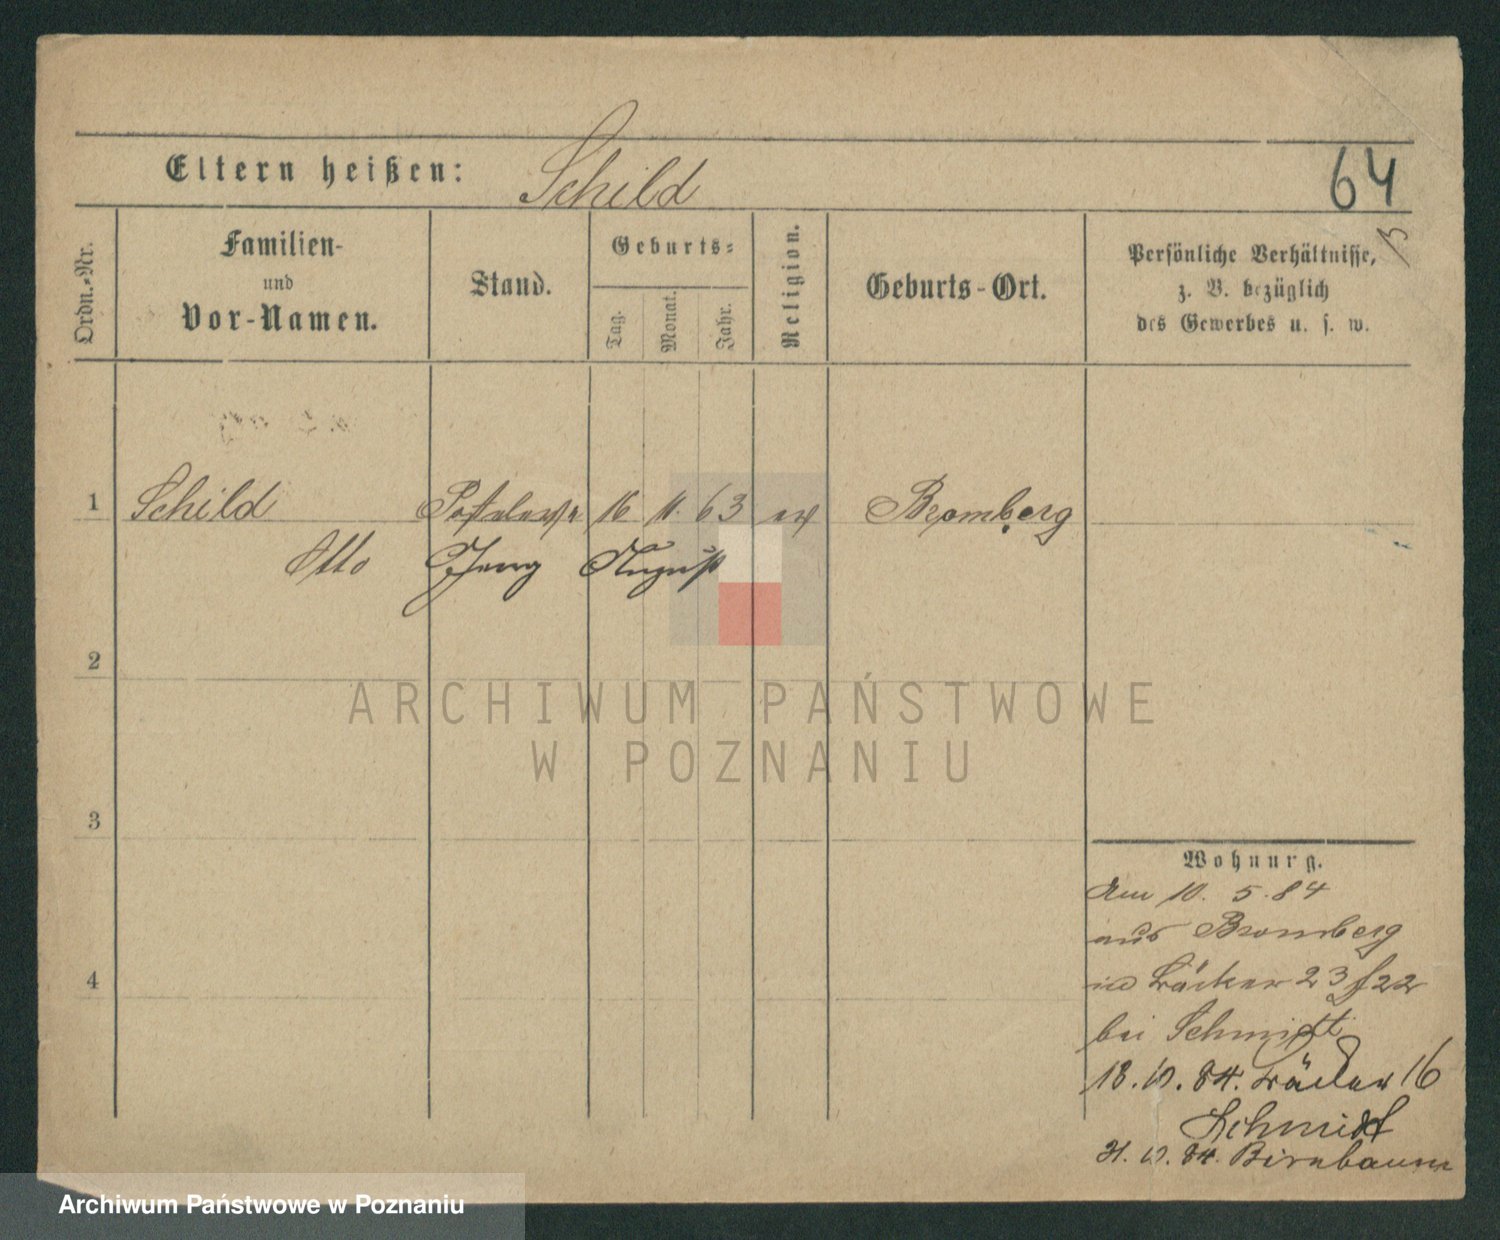 Eltern heißen: Schild
64
Ordn.-Nr.
Familien-
und
Vor-Namen.
Stand.
Geburts-
Tag.
Monat.
Jahr.
Religion.
Geburts-Ort.
Persönliche Verhältnisse,
z. B. bezüglich
des Gewerbes u. s. w.
1 Schild 16 11. 63 Bromberg
Otto August
2
ARCHIWUM PAŃSTWOWE
W POZNANIU
3
4
Wohnung.
Am 10. 5. 84
aus Bromberg
in Bäcker 23 22
bei Schmidt
18. 10. 84. Bäcker 16
Schmidt
31. 10. 84. Birnbaum
Archiwum Państwowe w Poznaniu